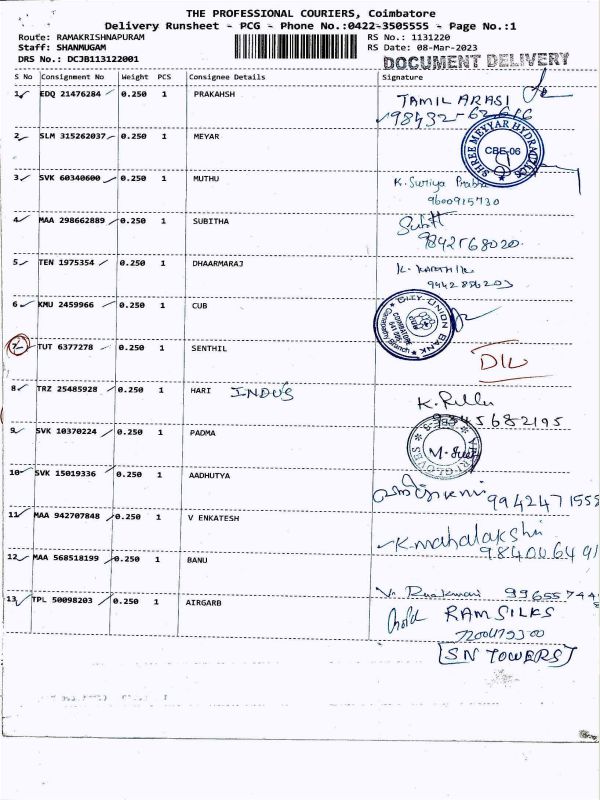 THE PROFESSIONAL COURIERS, Coimbatore
Delivery Runsheet - PCG - Phone No.:0422-3505555 - Page No.:1
Route: RAMAKRISHNAPURAM RS No.: 1131220
Staff: SHANMUGAM RS Date: 08-Mar-2023
DRS No.: DCJB113122001 DOCUMENT DELIVERY
S No Consignment No Weight PCS Consignee Details Signature
1 EDQ 21476284 0.250 1 PRAKAHSH TAMIL ARASI
98432-62616
2 SLM 315262037 0.250 1 MEYAR SHREE MEYYAR HYDRAULICS CBE-06
3 SVK 60340600 0.250 1 MUTHU K. Suriya Prabha
9600915730
4 MAA 298662889 0.250 1 SUBITHA
9842568020
5 TEN 1975354 0.250 1 DHAARMARAJ K. KARTHIK
9442876203
6 KMU 2459966 0.250 1 CUB CITY UNION BANK COIMBATORE
7 TUT 6377278 0.250 1 SENTHIL D/L
8 TRZ 25485928 0.250 1 HARI INDUS
9345682195
9 SVK 10370224 0.250 1 PADMA GLOVES
10 SVK 15019336 0.250 1 AADHUTYA
9942471558
11 MAA 942707848 0.250 1 V ENKATESH K. mahalakshmi
984006491
12 MAA 568518199 0.250 1 BANU
996557448
13 TPL 50098203 0.250 1 AIRGARB RAM SILKS
SN TOWERS